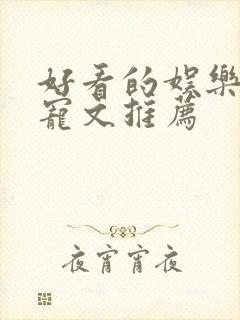 好看的娛樂
寵文推薦
夜宵宵夜